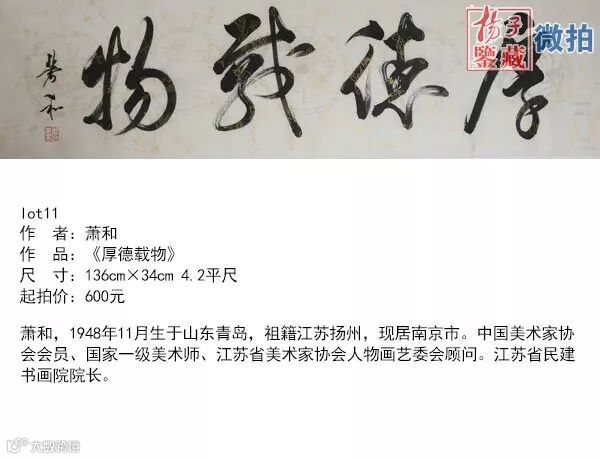 厚德载物
萧和
扬子
鉴藏
微拍
lot11
作 者：萧和
作 品：《厚德载物》
尺 寸：136cm×34cm 4.2平尺
起拍价：600元
萧和，1948年11月生于山东青岛，祖籍江苏扬州，现居南京市。中国美术家协
会会员、国家一级美术师、江苏省美术家协会人物画艺委会顾问。江苏省民建
书画院院长。
大数跨境